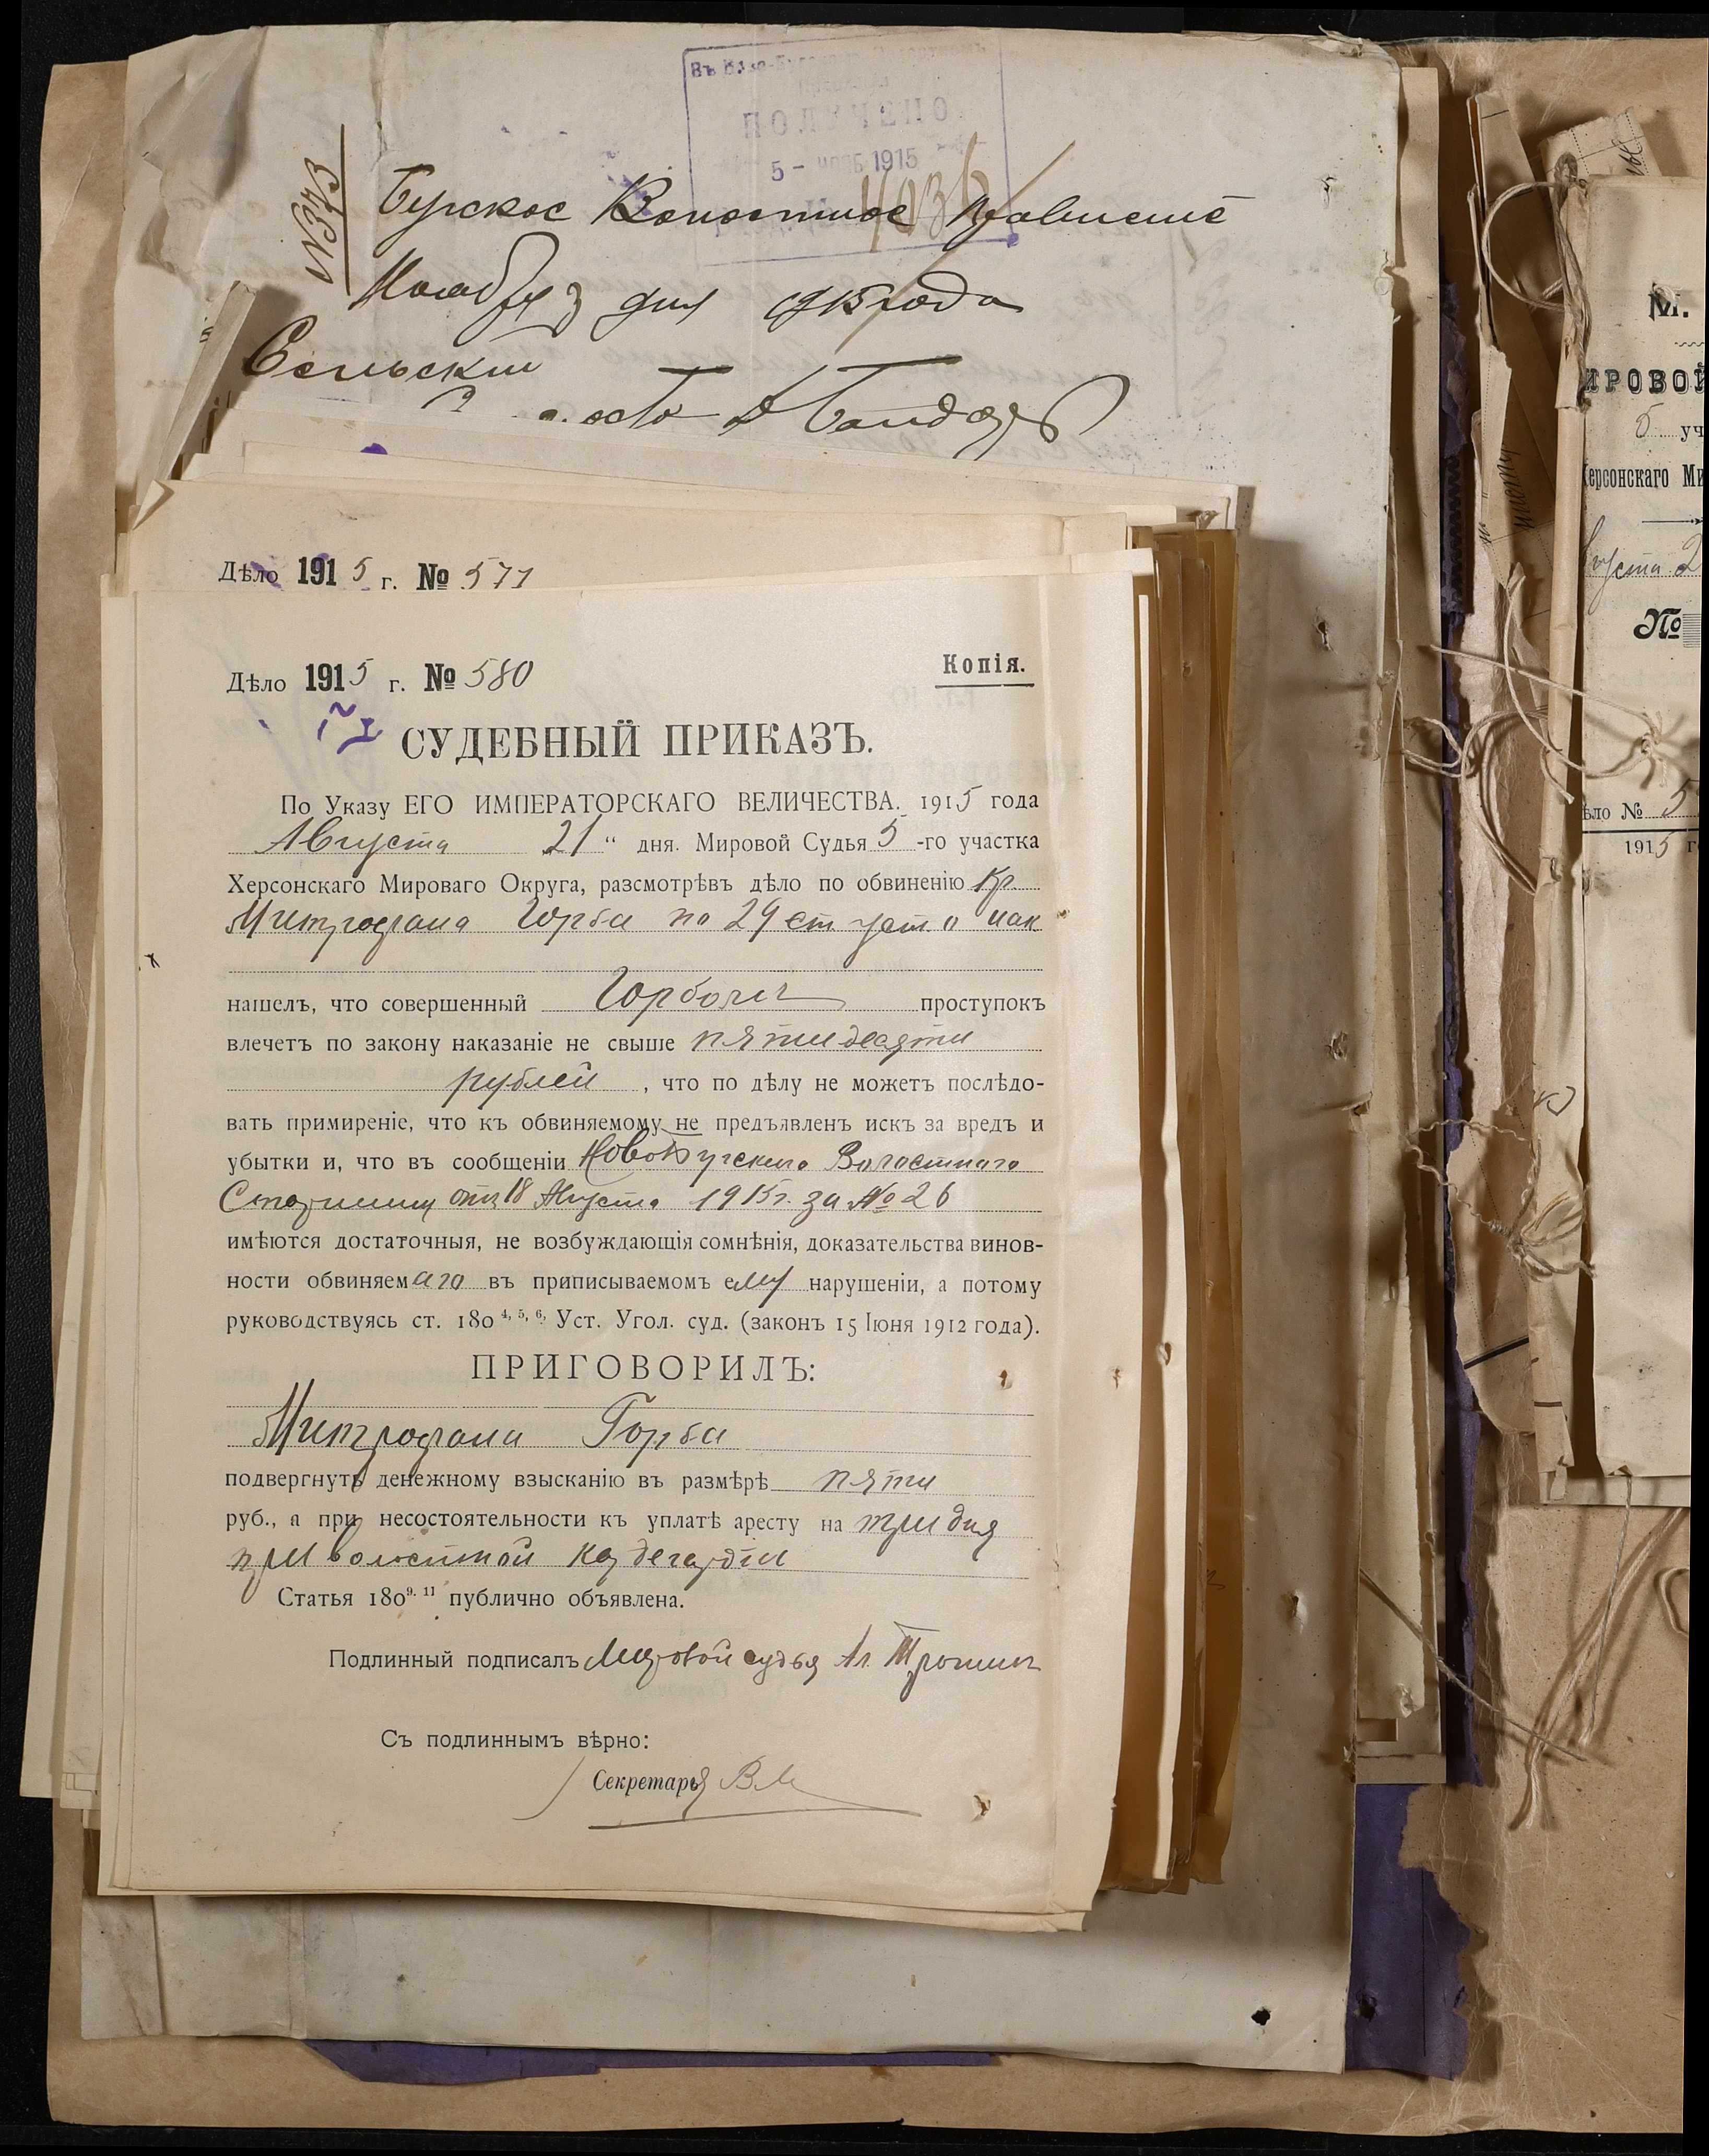 ПОЛУЧЕНО
5 – 1915
№373
Бугское Волостное Правление
Ноября 3 дня 1915 года
Сельский
Дѣло 1915 г. № 571
Дѣло 1915 г. № 580
Копія.
СУДЕБНЫЙ ПРИКАЗЪ.
По Указу ЕГО ИМПЕРАТОРСКАГО ВЕЛИЧЕСТВА. 1915 года
Августа 21 “ дня. Мировой Судья 5 -го участка
Херсонскаго Мироваго Округа, разсмотрѣвъ дѣло по обвиненію кр.
Митрофана Горба по 29 ст уст о нак
нашелъ, что совершенный Горбомъ проступокъ
влечетъ по закону наказаніе не свыше пятидесяти
рублей , что по дѣлу не можетъ послѣдо-
вать примиреніе, что къ обвиняемому не предъявленъ искъ за вредъ и
убытки и, что въ сообщеніи Новобугскаго Волостного
Старшины отъ 18 Августа 1915 г. за № 26
имѣются достаточныя, не возбуждающія сомнѣнія, доказательства винов-
ности обвиняемаго въ приписываемомъ ему нарушеніи, а потому
руководствуясь ст. 180 4, 5, 6, Уст. Угол. суд. (законъ 15 Іюня 1912 года).
ПРИГОВОРИЛЪ:
Митрофана Горба
подвергнуть денежному взысканію въ размѣрѣ пяти
руб., а при несостоятельности къ уплатѣ аресту на три дня
при волостной кордегардіи
Статья 180 9. 11 публично объявлена.
Подлинный подписалъ Мировой судья Ал. Трошин
Съ подлиннымъ вѣрно:
Секретарь
М.
ИРОВОЙ
5 уч
Херсонскаго Ми
вгуста 2
№
ѣло № 5
1915 г